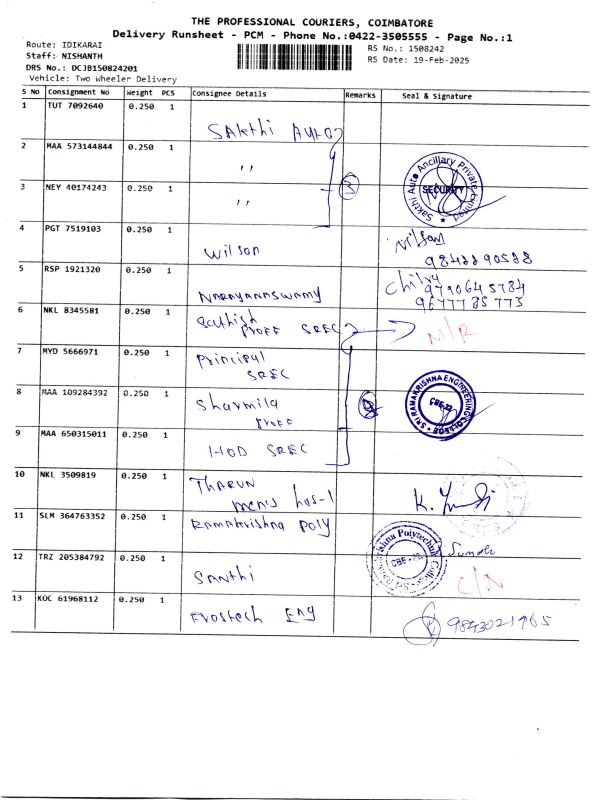 THE PROFESSIONAL COURIERS, COIMBATORE
Delivery Runsheet - PCM - Phone No.:0422-3505555 - Page No.:1
Route: IDIKARAI
RS No.: 1508242
Staff: NISHANTH
RS Date: 19-Feb-2025
DRS No.: DCJB150824201
Vehicle: Two Wheeler Delivery
S No Consignment No Weight PCS Consignee Details Remarks Seal & Signature
1 TUT 7092640 0.250 1
Sakthi Auto
2 MAA 573144844 0.250 1
,,
3 NEY 40174243 0.250 1
,,
3
Sakthi Auto Ancillary Private Limited
SECURITY
4 PGT 7519103 0.250 1
Wilson
Wilson
5 RSP 1921320 0.250 1
Narayanaswamy
9790645784
9677785773
6 NKL 8345581 0.250 1
Sathish
Proff SREC
N/R
7 MYD 5666971 0.250 1
Principal
SREC
8 MAA 109284392 0.250 1
Sharmila
Proff
SRI RAMAKRISHNA ENGINEERING COLLEGE
CBE-22
9 MAA 650315011 0.250 1
HOD SREC
10 NKL 3509819 0.250 1
Tharun
mens hos-1
11 SLM 364763352 0.250 1
Ramakrishna Poly
12 TRZ 205384792 0.250 1
Santhi
CBE-22
C/N
13 KOC 61968112 0.250 1
Frostech Eng
9843021965